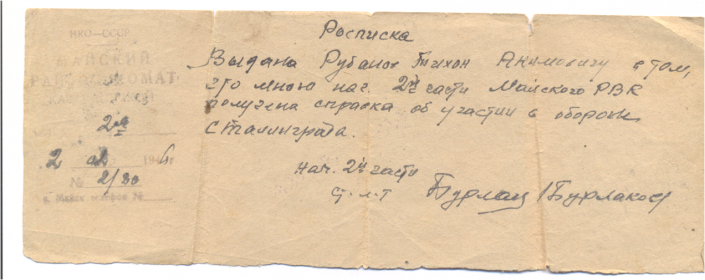 НКО-СССР
МАЙСКИЙ
РАЙВОЕНКОМАТ
2я
2
194
№ 2/30
Росписка
Выдана Рубанок Тихон Акимовичу в том,
что мною нач. 2й части Майского РВК
получена справка об участии в обороне
Сталинграда.
нач. 2й части
ст. л-т Бурлак /Бурлаков/